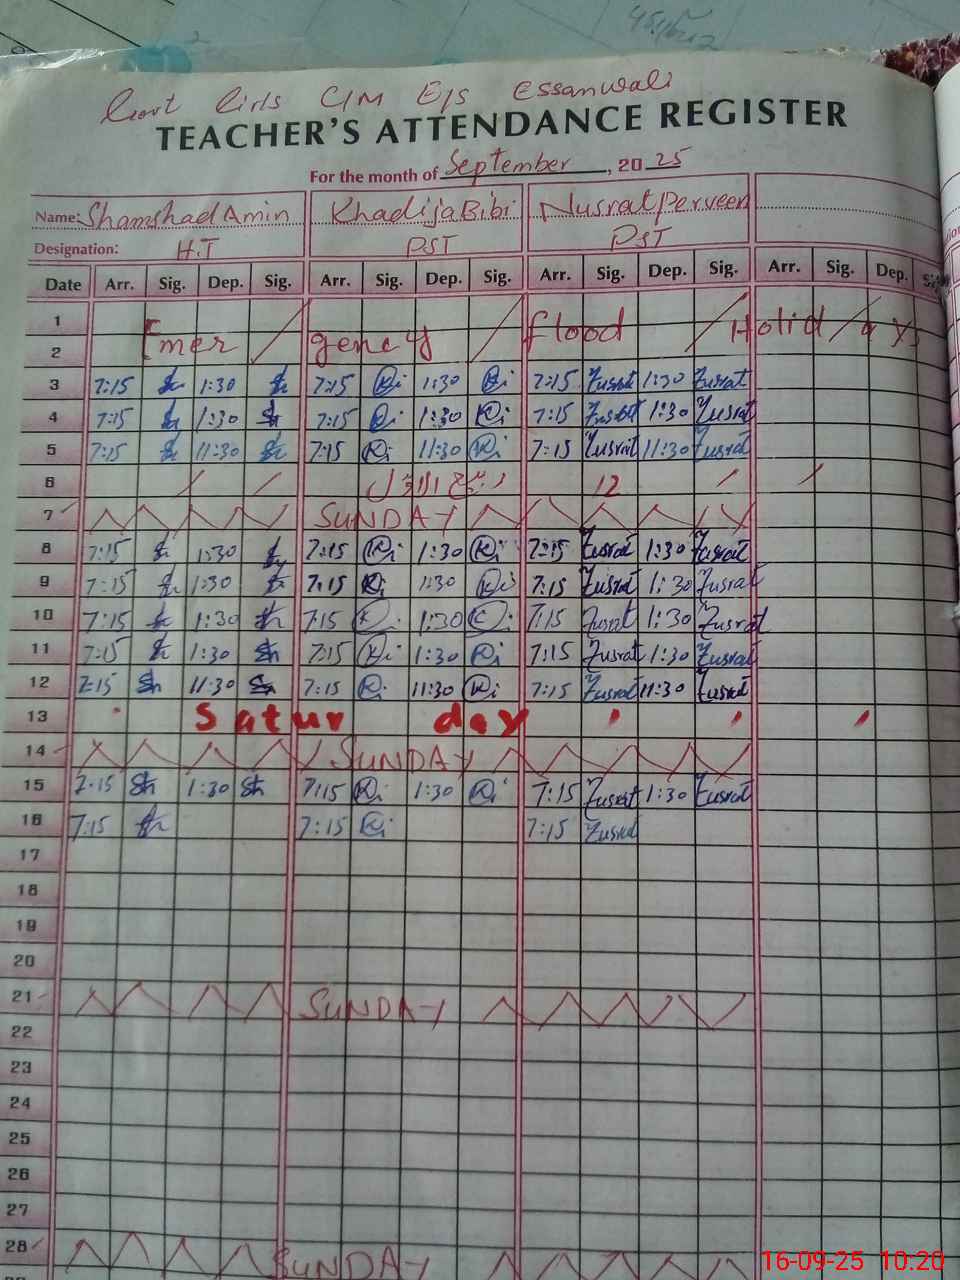 Govt Girls C/M E/S Essanwali
TEACHER'S ATTENDANCE REGISTER
For the month of September, 20 25
Name: Shamshad Amin Khadija Bibi Nusrat Perveen
Designation: H.T PST PST
Date Arr. Sig. Dep. Sig. Arr. Sig. Dep. Sig. Arr. Sig. Dep. Sig. Arr. Sig. Dep. Sig.
1
Emer / gency / flood / Holid / ays
2
3 7:15 Sh 1:30 Sh 7:15 Ki 1:30 Ki 7:15 Zusrat 1:30 Zusrat
4 7:15 Sh 1:30 Sh 7:15 Ki 1:30 Ki 7:15 Zusrat 1:30 Zusrat
5 7:15 Sh 11:30 Sh 7:15 Ki 11:30 Ki 7:15 Zusrat 11:30 Zusrat
6 12
7 SUNDAY
8 7:15 Sh 1:30 Sh 7:15 Ki 1:30 Ki 7:15 Zusrat 1:30 Zusrat
9 7:15 Sh 1:30 Sh 7:15 Ki 1:30 Ki 7:15 Zusrat 1:30 Zusrat
10 7:15 Sh 1:30 Sh 7:15 Ki 1:30 Ki 7:15 Zusrat 1:30 Zusrat
11 7:15 Sh 1:30 Sh 7:15 Ki 1:30 Ki 7:15 Zusrat 1:30 Zusrat
12 7:15 Sh 11:30 Sh 7:15 Ki 11:30 Ki 7:15 Zusrat 11:30 Zusrat
13 Satur day
14 SUNDAY
15 7:15 Sh 1:30 Sh 7:15 Ki 1:30 Ki 7:15 Zusrat 1:30 Zusrat
16 7:15 Sh 7:15 Ki 7:15 Zusrat
17
18
19
20
21 SUNDAY
22
23
24
25
26
27
28 SUNDAY
16-09-25 10:20